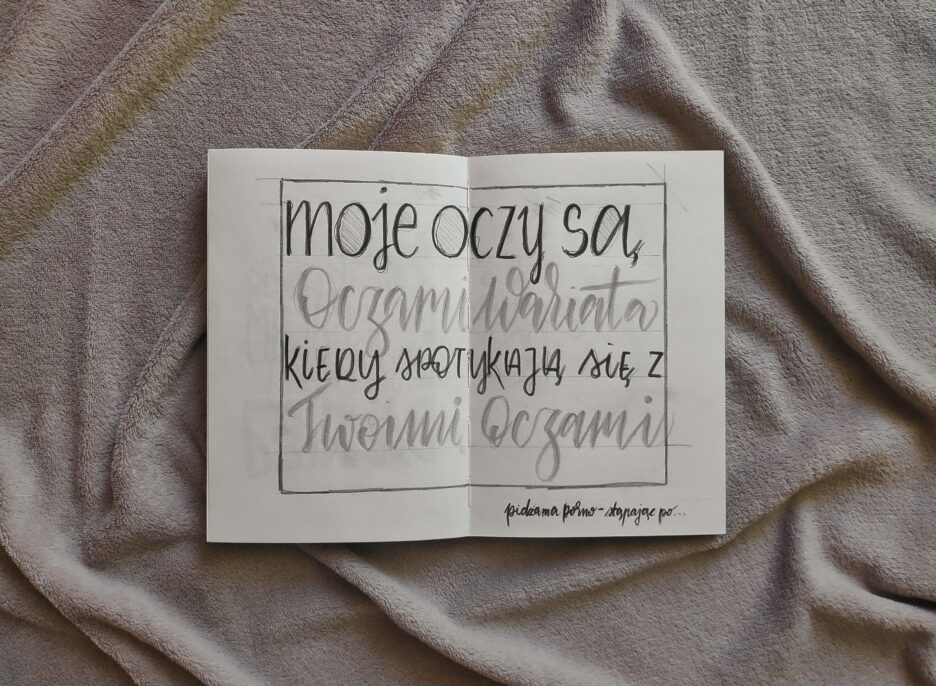 moje oczy są
Oczami Wariata
kiedy spotykają się z
Twoimi Oczami
pidżama porno - stąpając po...